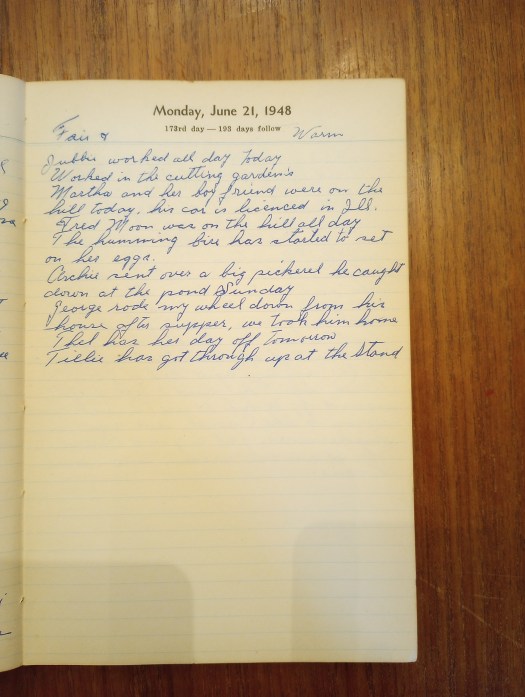 Monday, June 21, 1948
173rd day — 193 days follow
Fair & Warm
worked all day today
Worked in the cutting garden's
Martha and her boy friend were on the
hill today, his car is licenced in Ill.
Fred Moon was on the hill all day
The humming bire has started to set
on hes eggs.
Archie sent over a big pickerel he caught
down at the pond Sunday
George rode my wheel down from his
house after supper, we took him home
Thel has her day off tomorrow
Tillie has got through up at the stand